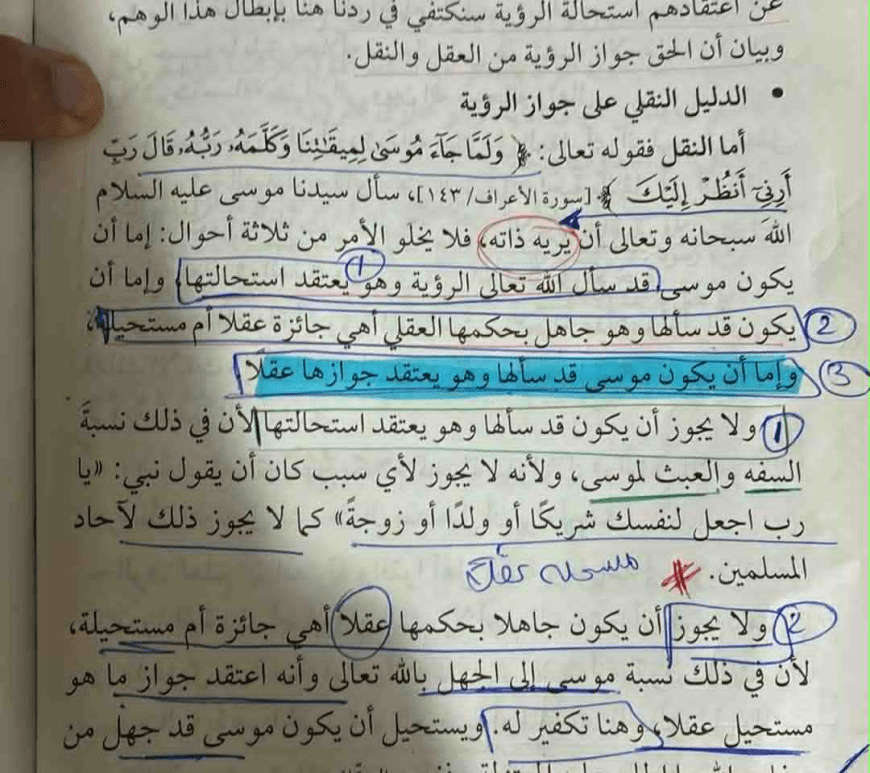 عن اعتقادهم استحالة الرؤية سنكتفي في ردنا هنا بإبطال هذا الوهم،
وبيان أن الحق جواز الرؤية من العقل والنقل.
• الدليل النقلي على جواز الرؤية
أما النقل فقوله تعالى: ﴿ وَلَمَّا جَآءَ مُوسَىٰ لِمِيقَٰتِنَا وَكَلَّمَهُۥ رَبُّهُۥ قَالَ رَبِّ
أَرِنِيٓ أَنظُرْ إِلَيْكَ ﴾ [سورة الأعراف/ ١٤٣]، سأل سيدنا موسى عليه السلام
اللهَ سبحانه وتعالى أن يريه ذاته، فلا يخلو الأمر من ثلاثة أحوال: إما أن
يكون موسى قد سأل الله تعالى الرؤية وهو يعتقد استحالتها، وإما أن
1
يكون قد سألها وهو جاهل بحكمها العقلي أهي جائزة عقلا أم مستحيلة،
2
وإما أن يكون موسى قد سألها وهو يعتقد جوازها عقلًا
3
1 ولا يجوز أن يكون قد سألها وهو يعتقد استحالتها لأن في ذلك نسبةَ
السفه والعبث لموسى، ولأنه لا يجوز لأي سبب كان أن يقول نبي: «يا
رب اجعل لنفسك شريكًا أو ولدًا أو زوجةً» كما لا يجوز ذلك لآحاد
المسلمين.
2 ولا يجوز أن يكون جاهلا بحكمها عقلا أهي جائزة أم مستحيلة،
لأن في ذلك نسبة موسى إلى الجهل بالله تعالى وأنه اعتقد جواز ما هو
مستحيل عقلا، وهنا تكفير له. ويستحيل أن يكون موسى قد جهل من